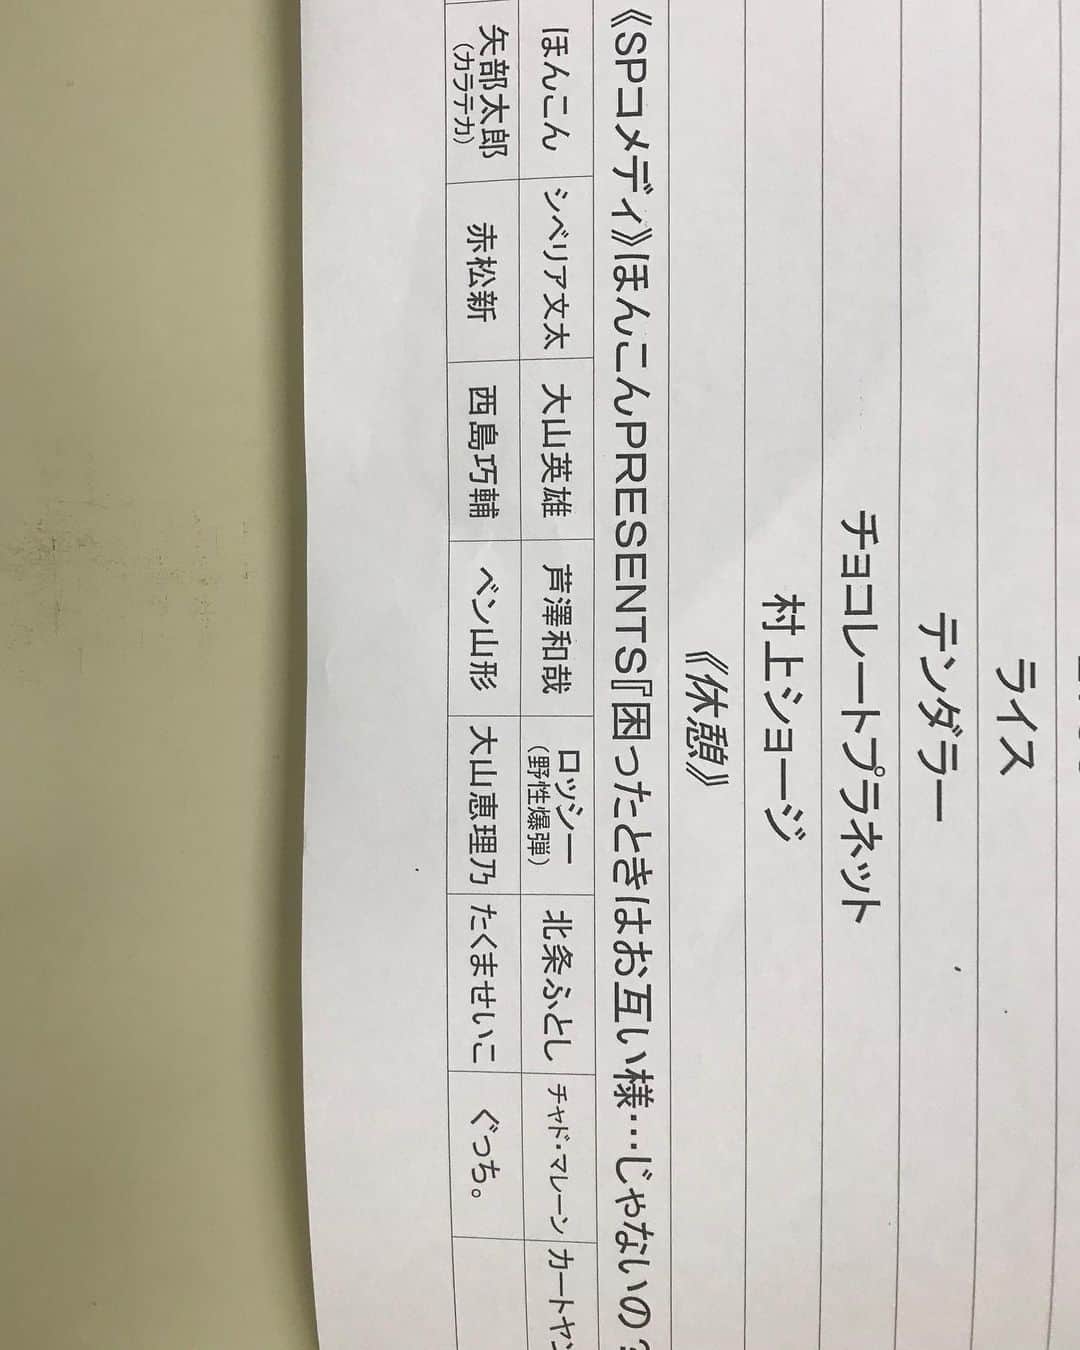 ライス
テンダラー
チョコレートプラネット
村上ショージ
《休憩》
《SPコメディ》ほんこんPRESENTS『困ったときはお互い様…じゃないの?
ほんこん シベリア文太 大山英雄 芦澤和哉 ロッシー(野性爆弾) 北条ふとし チャド・マレーン カートヤン
矢部太郎(カラテカ) 赤松新 西島巧輔 ベン山形 大山恵理乃 たくませいこ ぐっち。